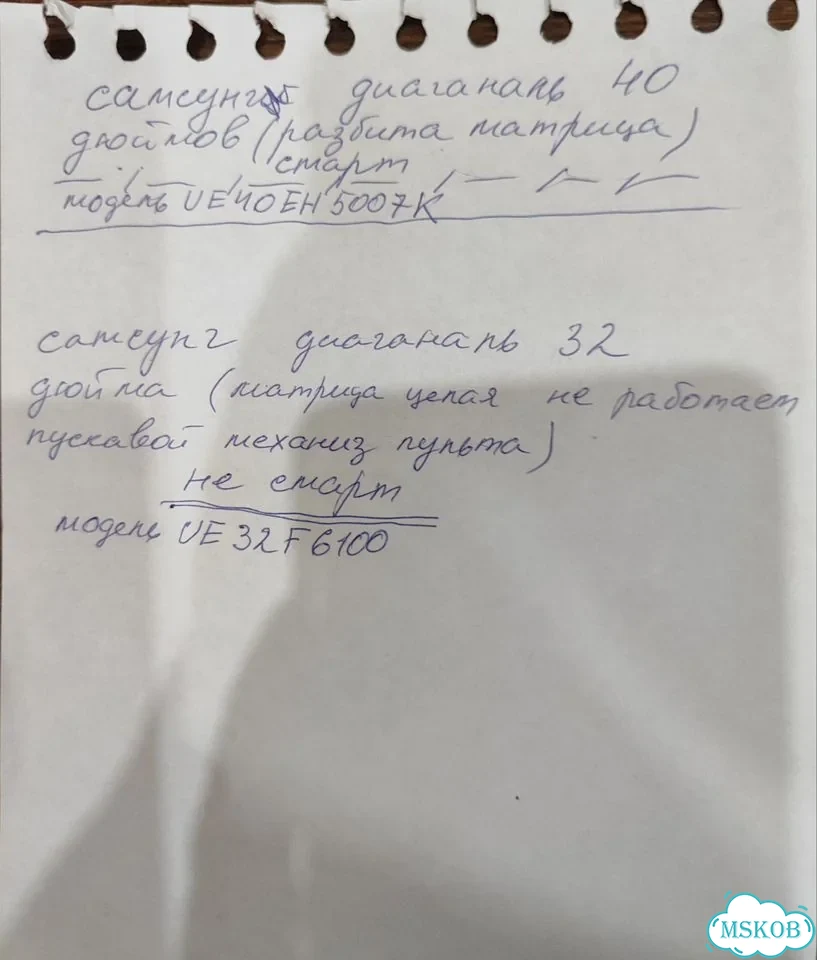 самсунг диаганаль 40
дюймов (разбита матрица)
старт
модель UE40EH5007K
самсунг диаганаль 32
дюйма (матрица целая не работает
пускавой механиз пульта)
не старт
модель UE32F6100
MSKOB